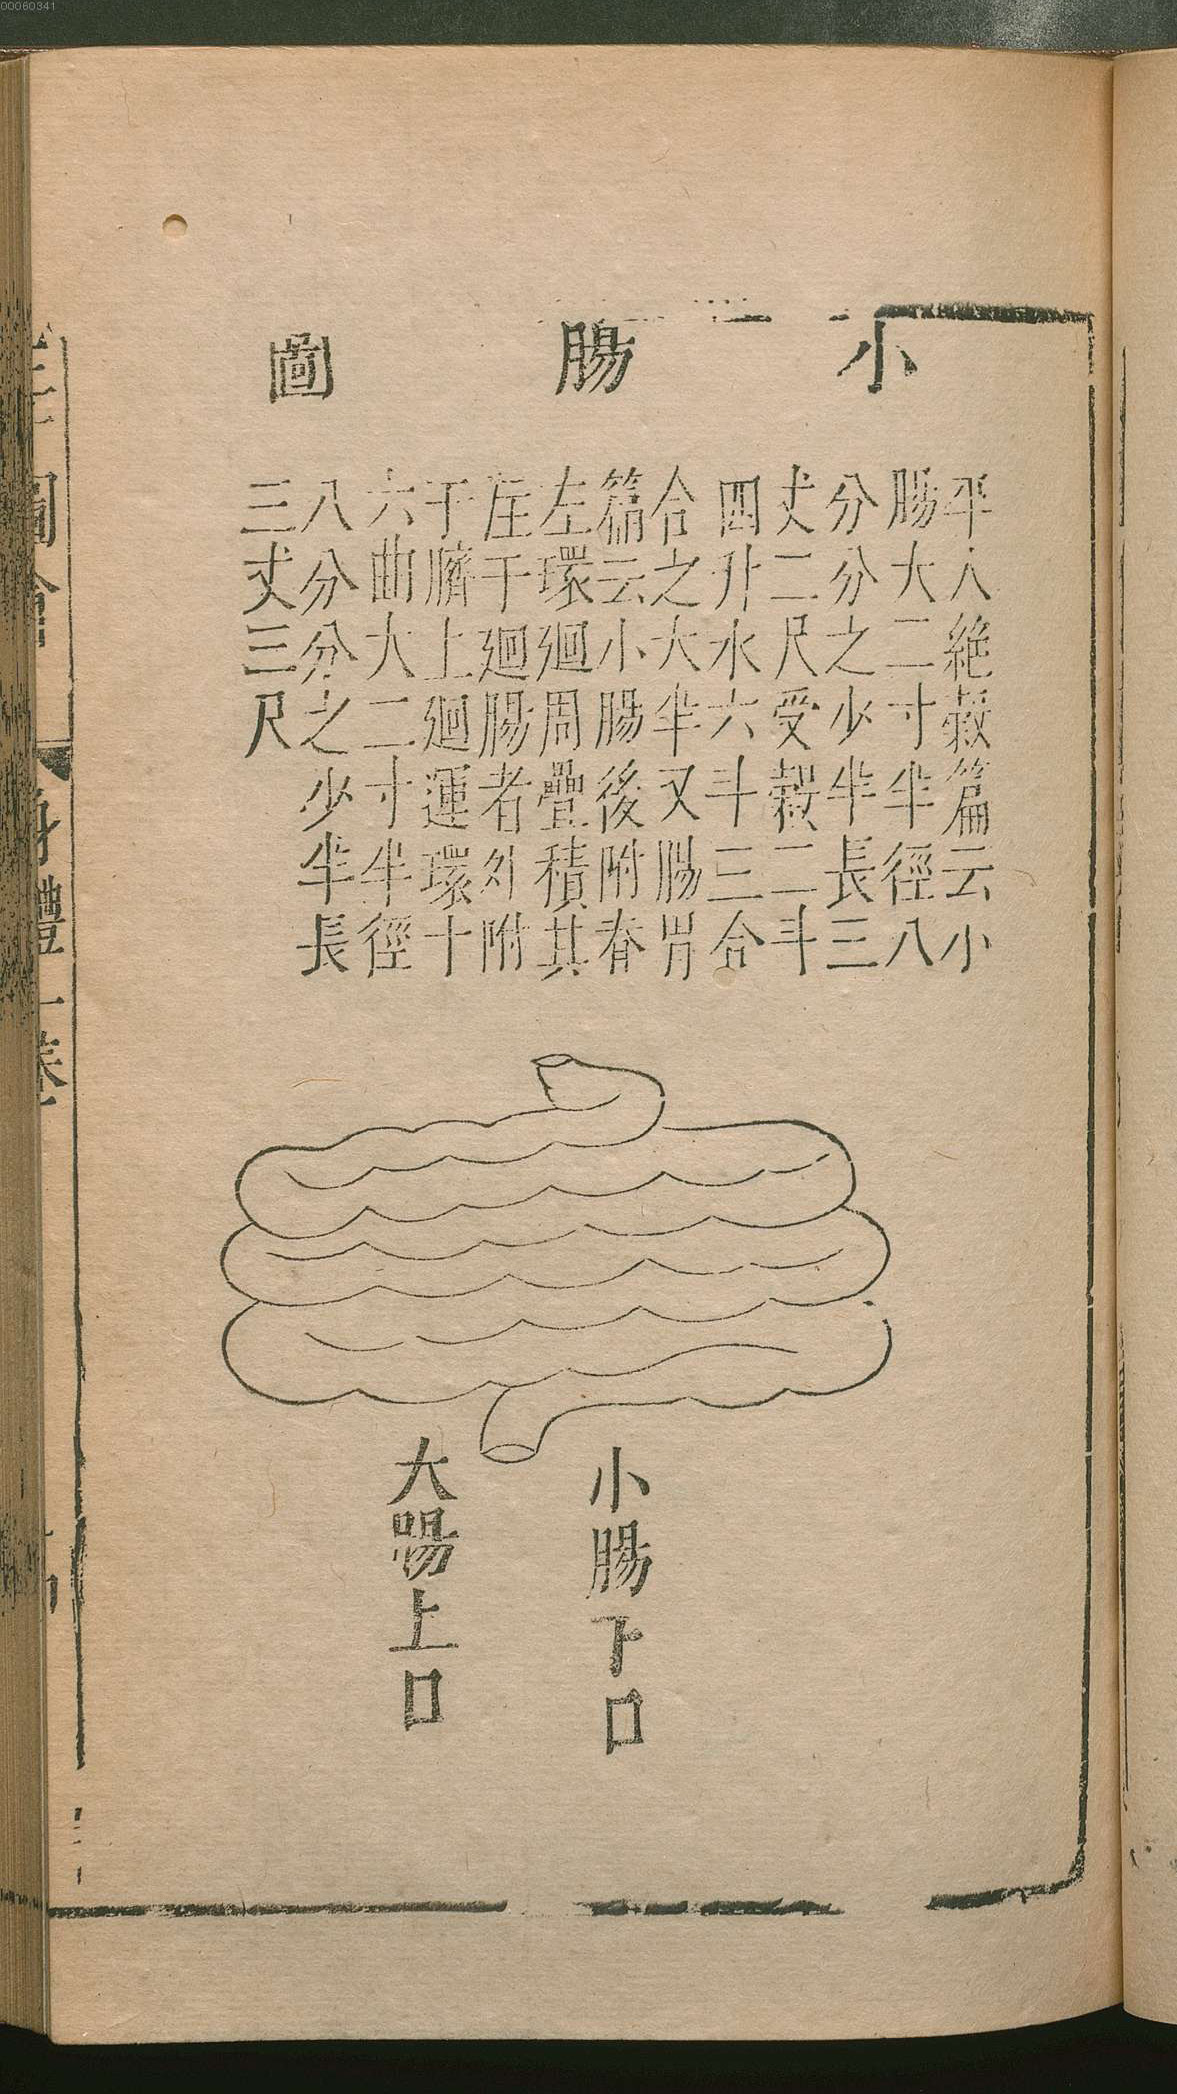 00060341
小腸圖
平人絶穀篇云小
腸大二寸半徑八
分分之少半長三
丈二尺受穀二斗
四升水六斗三合
合之大半又腸胃
篇云小腸後附脊
左環廻周疊積其
注于廻腸者外附
于臍上廻運環十
六曲大二寸半徑
八分分之少半長
三丈三尺
小腸下口
大腸上口
圖會
身體一卷